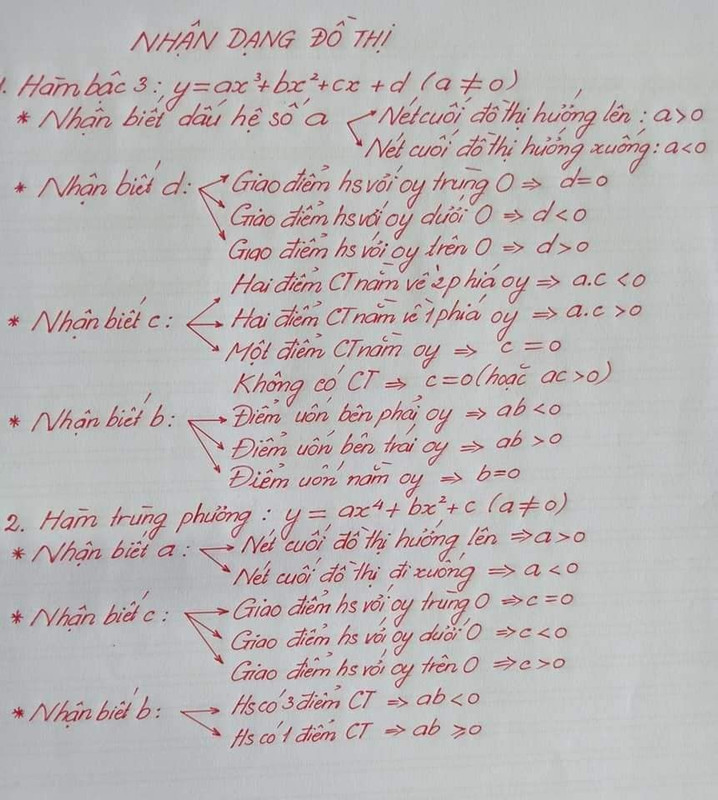 NHẬN DẠNG ĐỒ THỊ
1. Hàm bậc 3: y=ax³+bx²+cx+d (a≠0)
* Nhận biết dấu hệ số a → Nét cuối đồ thị hướng lên: a>0
→ Nét cuối đồ thị hướng xuống: a<0
* Nhận biết d: → Giao điểm hs với oy trùng O ⇒ d=0
→ Giao điểm hs với oy dưới O ⇒ d<0
→ Giao điểm hs với oy trên O ⇒ d>0
Hai điểm CT nằm về 2 phía oy ⇒ a.c<0
* Nhận biết c: → Hai điểm CT nằm về 1 phía oy ⇒ a.c>0
→ Một điểm CT nằm oy ⇒ c=0
Không có CT ⇒ c=0 (hoặc ac>0)
* Nhận biết b: → Điểm uốn bên phải oy ⇒ ab<0
→ Điểm uốn bên trái oy ⇒ ab>0
→ Điểm uốn nằm oy ⇒ b=0
2. Hàm trùng phương: y=ax⁴+bx²+c (a≠0)
* Nhận biết a: → Nét cuối đồ thị hướng lên ⇒ a>0
→ Nét cuối đồ thị đi xuống ⇒ a<0
* Nhận biết c: → Giao điểm hs với oy trùng O ⇒ c=0
→ Giao điểm hs với oy dưới O ⇒ c<0
→ Giao điểm hs với oy trên O ⇒ c>0
* Nhận biết b: → Hs có 3 điểm CT ⇒ ab<0
→ Hs có 1 điểm CT ⇒ ab⩾0